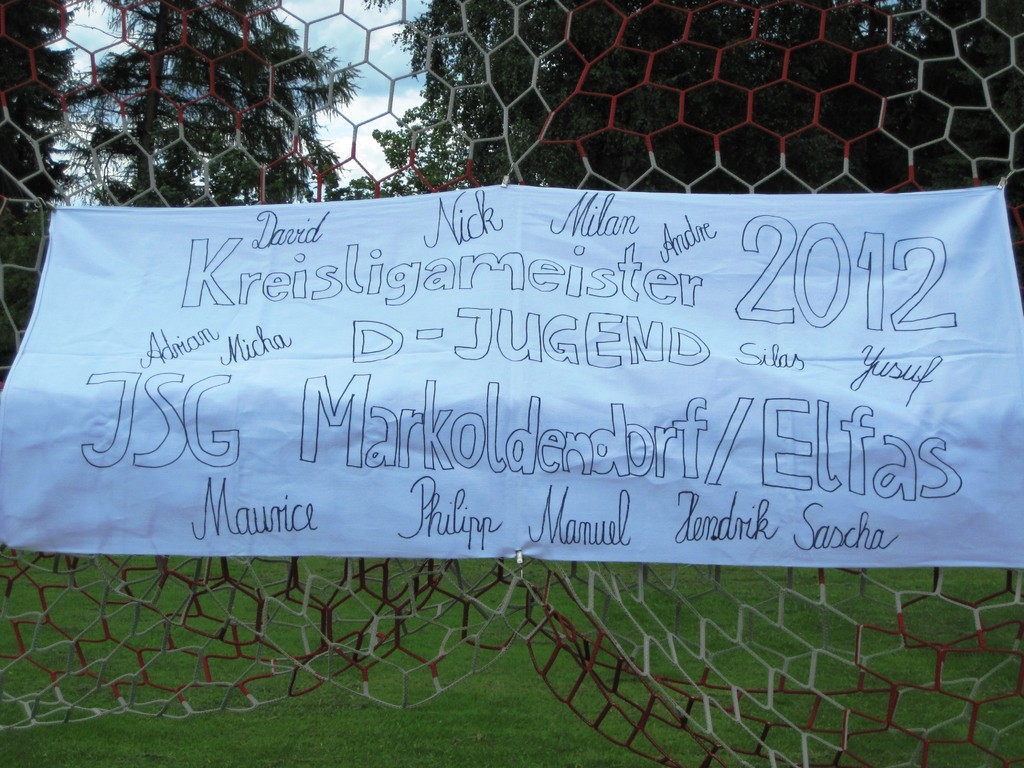 David Nick Milan Andre
Kreisligameister 2012
Adrian Micha D-JUGEND Silas Yusuf
JSG Markoldendorf/Elfas
Maurice Philipp Manuel Hendrik Sascha